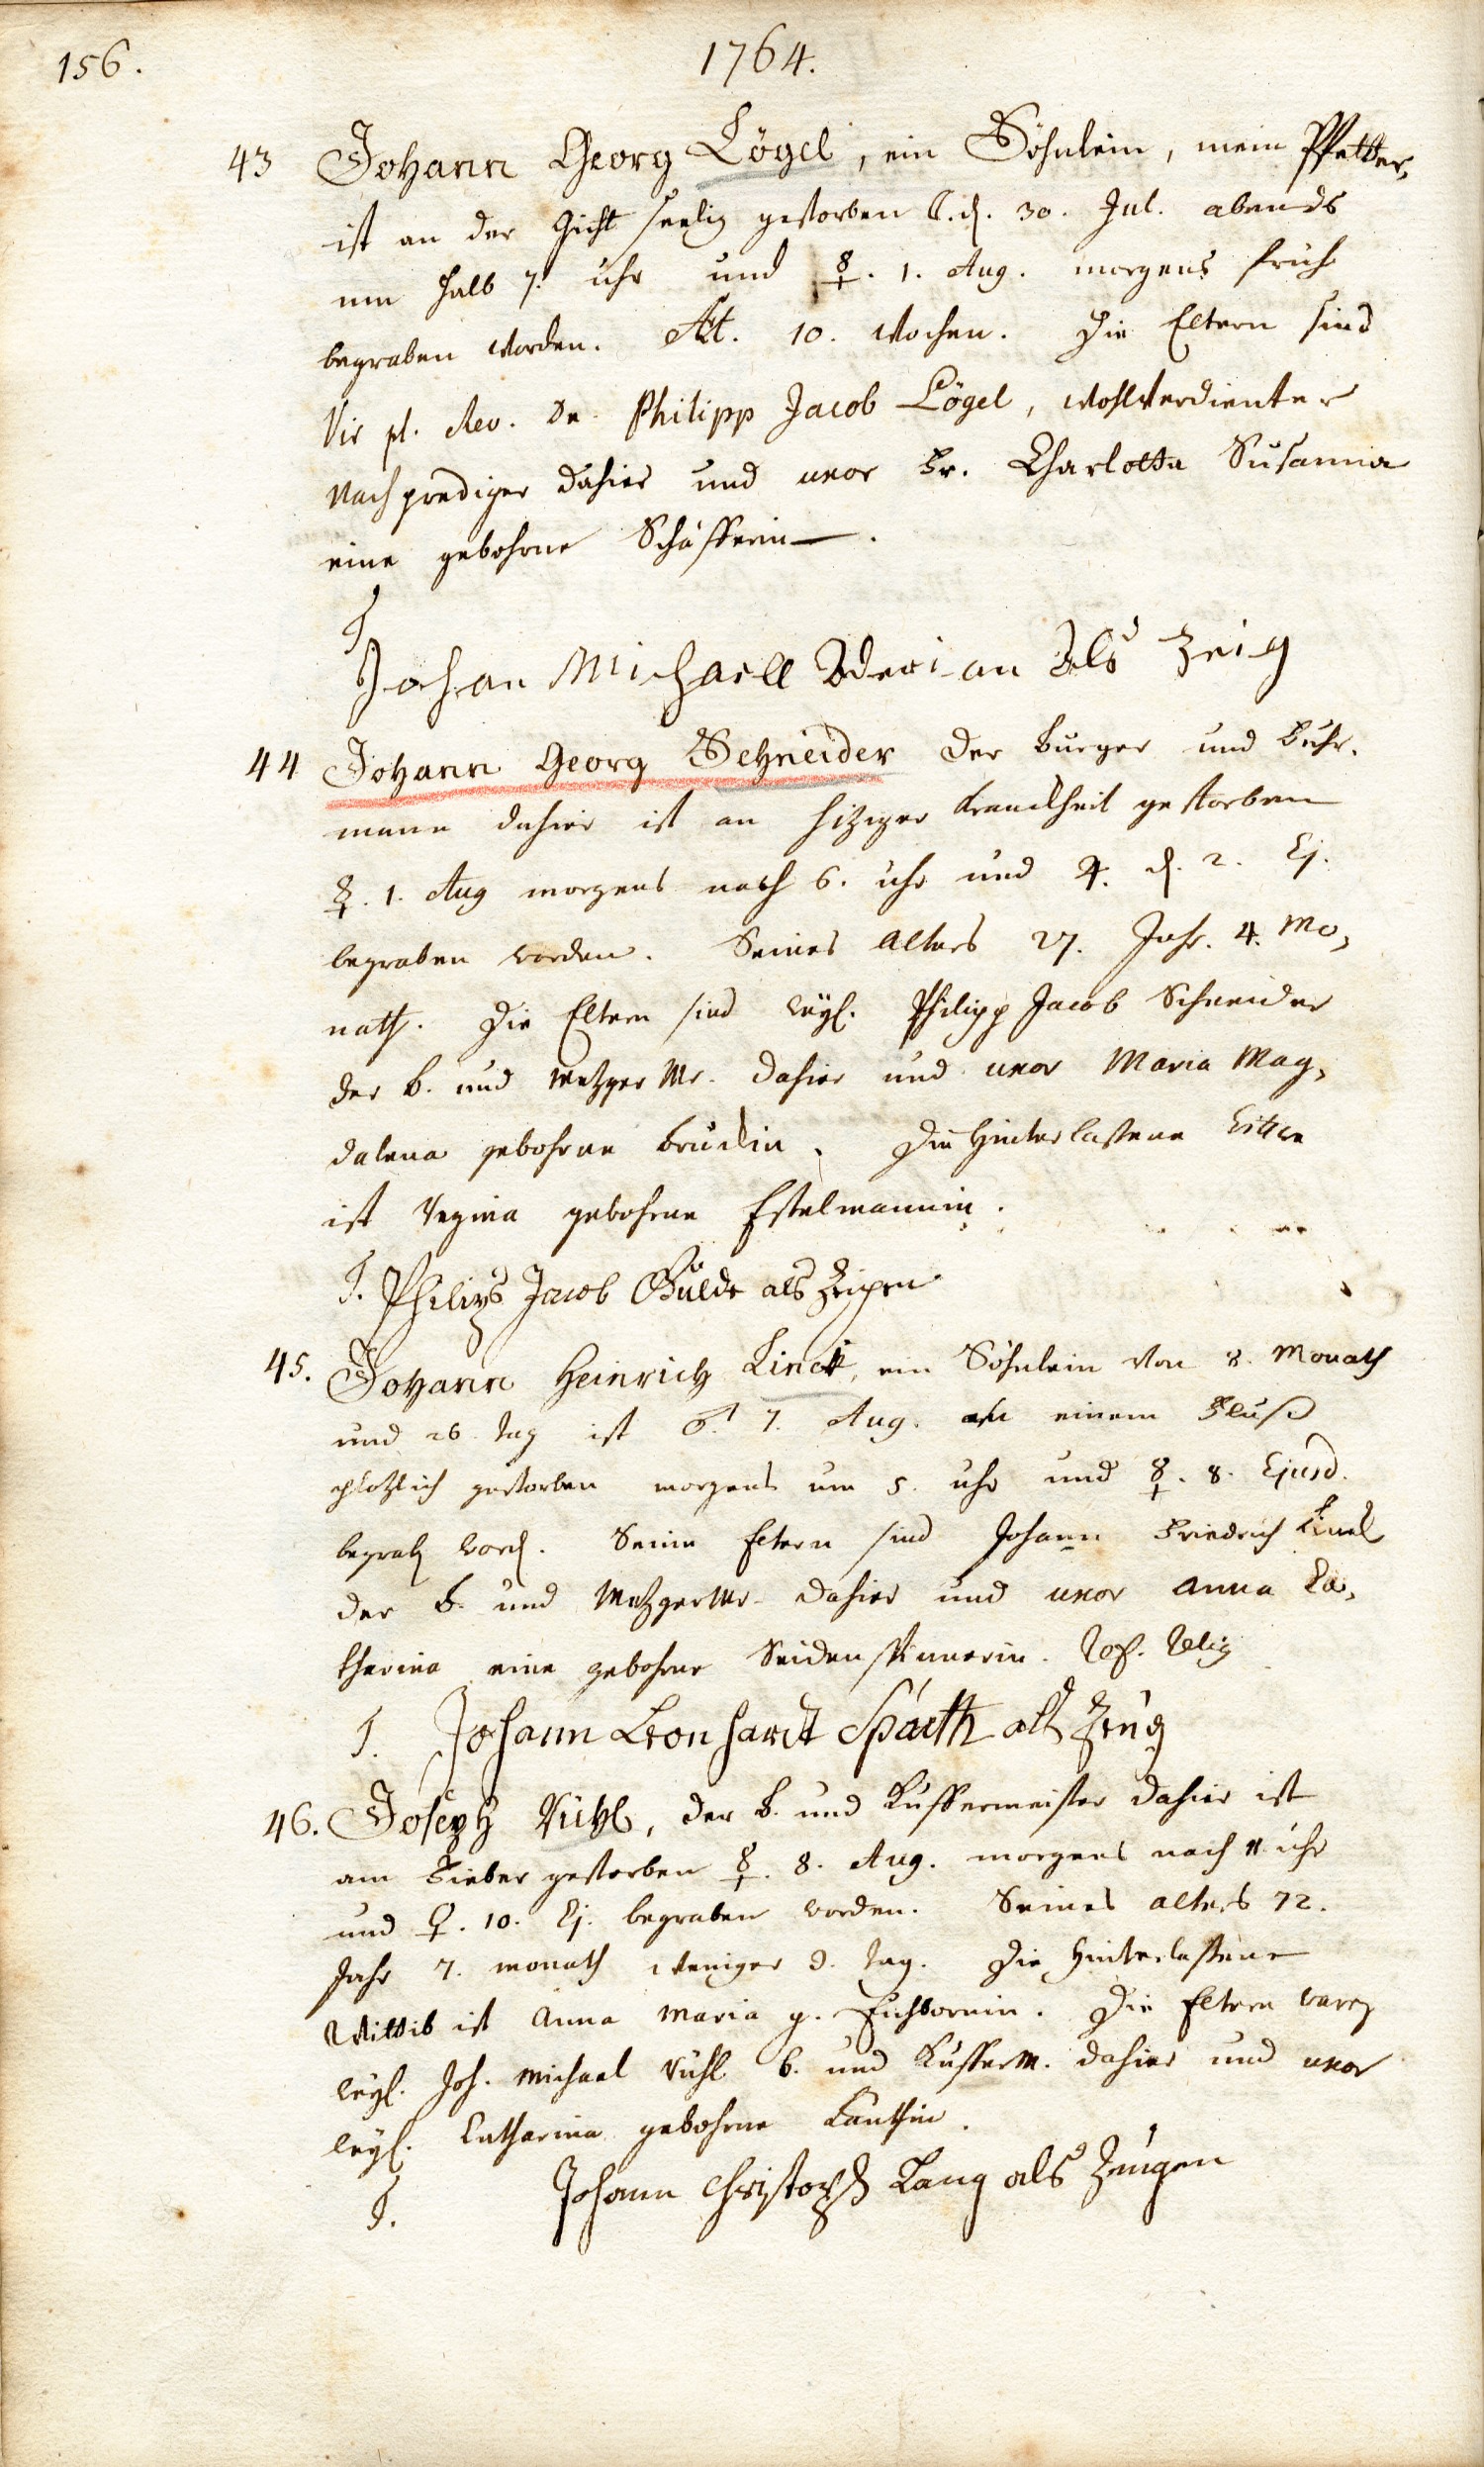 156.
1764.
43 Johann Georg Lögel, ein Söhnlein, mein Pfetter,
ist an der Gicht seelig gestorben ☾. d. 30. Jul. abends
um halb 7. uhr und ☿. 1. Aug. morgens früh
begraben worden. Æt. 10. Wochen. Die Eltern sind
Vir pl. Rev. Dn. Philipp Jacob Lögel, wohlverdienter
Nachprediger dahier und uxor Fr. Charlotta Susanna
eine gebohrne Schäfferin.
T
Johan Michaell als Zeig
44 Johann Georg Schneider der burger und fuhr-
mann dahier ist an hiziger Kranckheit gestorben
☿. 1. Aug morgens nach 6. uhr und ♃. d. 2. Ej.
begraben worden. Seines alters 27. Jahr. 4. Mo,
nath. Die Eltern sind weyl. Philipp Jacob Schneider
der b. und Metzger Mr. dahier und uxor Maria Mag,
dalena gebohrne Bruckin. Die Hinterlassene
ist Regina gebohrne Estelmännin.
T. Philips Jacob Gülde als Zeigen
45. Johann Heinrich Linck, ein Söhnlein von 8. Monath
und 26. Tag ist ♂. 7. Aug. an einem Fluß
plötzlich gestorben morgens um 5. uhr und ☿. 8. Ejusd.
begrab. word. Seine Eltern sind Johann Friedrich Linck
der b. und Metzger Mr. dahier und uxor Anna Ca,
tharina eine gebohrne Seidenspinnerin.
T. Johann Leonhardt Späth als Zeug
46. Joseph Rühl, der b. und Kuffermeister dahier ist
am Fieber gestorben ☿. 8. Aug. morgens nach 11. uhr
und ♀. 10. Ej. begraben worden. Seines alters 72.
Jahr 7. monath weniger 3. tag. Die Hinterlassene
Wittib ist Anna Maria g. Eichbornin. Die Eltern waren
weyl. Joh. Michael Rühl b. und Kufferm. dahier und uxor
weyl. Catharina gebohrne
T. Johann Christoph Lang als Zeugen